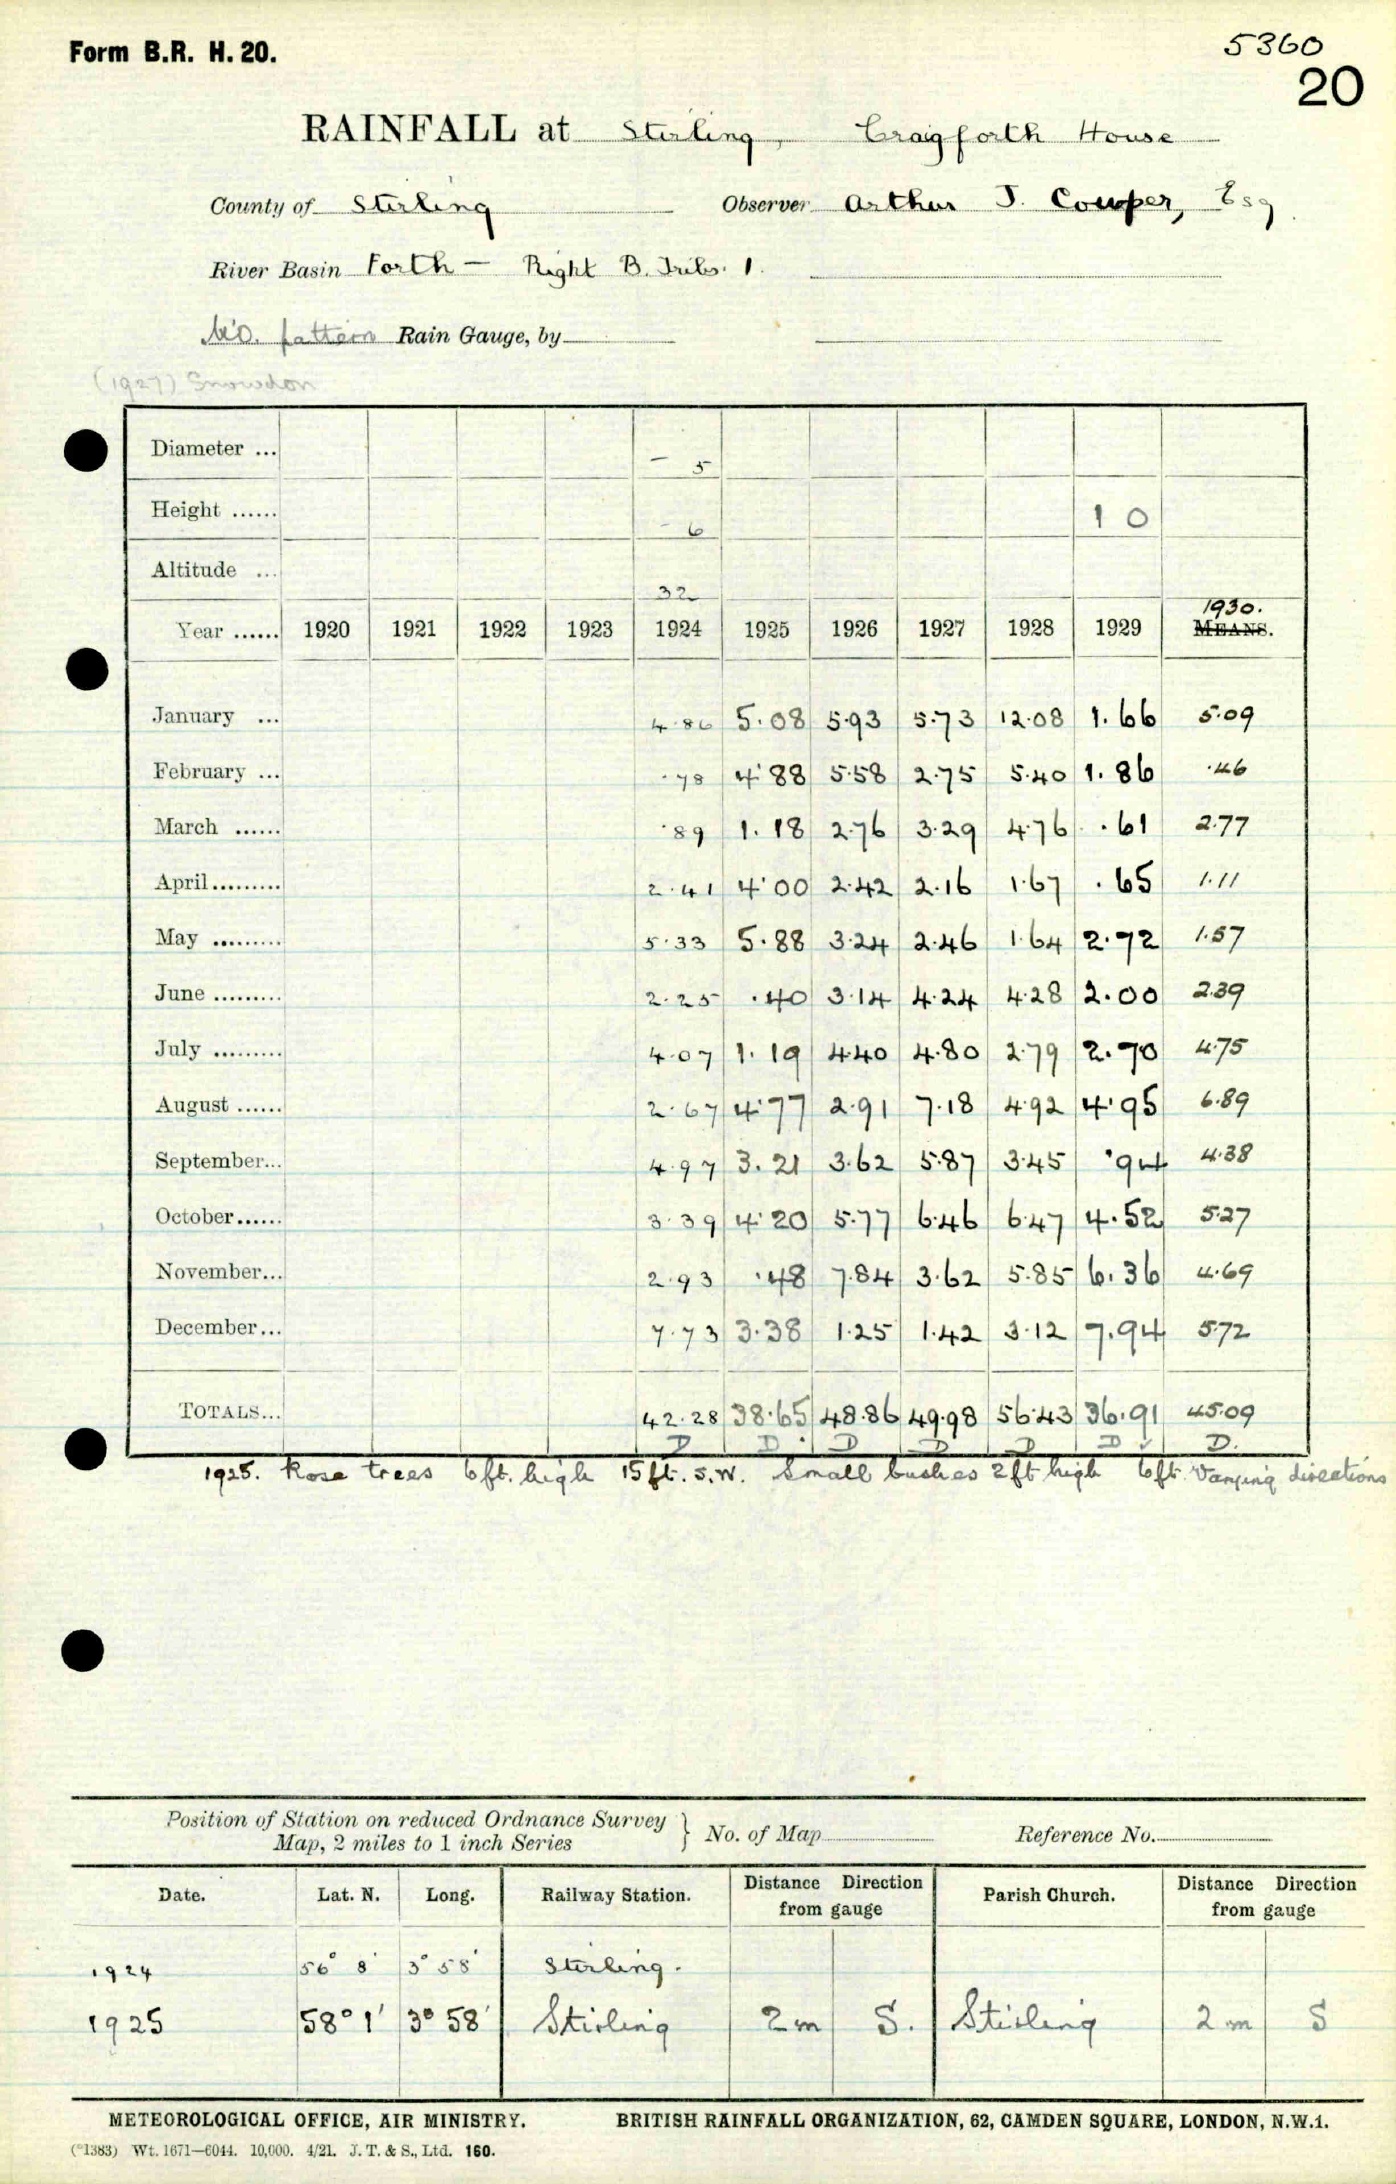 Form B.R. H. 20.
5360
20
RAINFALL at Stirling, Craigforth House
County of Stirling Observer Arthur J. Cowper, Esq.
River Basin Forth — Right B. Tribs. 1.
M.O. pattern Rain Gauge, by
(1927) Snowdon
Diameter ... – 5
Height ...... – 6 1 0
Altitude ... 32
1930.
Year ...... 1920 1921 1922 1923 1924 1925 1926 1927 1928 1929 MEANS.
January ... 4.86 5.08 5.93 5.73 12.08 1.66 5.09
February ... .78 4.88 5.58 2.75 5.40 1.86 .46
March ...... .89 1.18 2.76 3.29 4.76 .61 2.77
April ......... 2.41 4.00 2.42 2.16 1.67 .65 1.11
May ......... 5.33 5.88 3.24 2.46 1.64 2.72 1.57
June ......... 2.25 .40 3.14 4.24 4.28 2.00 2.39
July ......... 4.07 1.19 4.40 4.80 2.79 2.70 4.75
August ...... 2.67 4.77 2.91 7.18 4.92 4.95 6.89
September... 4.97 3.21 3.62 5.87 3.45 .94 4.38
October...... 3.39 4.20 5.77 6.46 6.47 4.52 5.27
November... 2.93 .48 7.84 3.62 5.85 6.36 4.69
December... 7.73 3.38 1.25 1.42 3.12 7.94 5.72
TOTALS... 42.28 38.65 48.86 49.98 56.43 36.91 45.09
D D D D D D D.
1925. Rose trees 6ft. high 15ft. S.W. Small bushes 2ft high 6ft. Varying directions
Position of Station on reduced Ordnance Survey
Map, 2 miles to 1 inch Series } No. of Map Reference No.
Date. Lat. N. Long. Railway Station. Distance Direction from gauge Parish Church. Distance Direction from gauge
1924 56° 8' 3° 58' Stirling.
1925 58° 1' 3° 58' Stirling 2m S. Stirling 2m S
METEOROLOGICAL OFFICE, AIR MINISTRY. BRITISH RAINFALL ORGANIZATION, 62, CAMDEN SQUARE, LONDON, N.W.1.
(*1383) Wt. 1671—6044. 10,000. 4/21. J. T. & S., Ltd. 160.